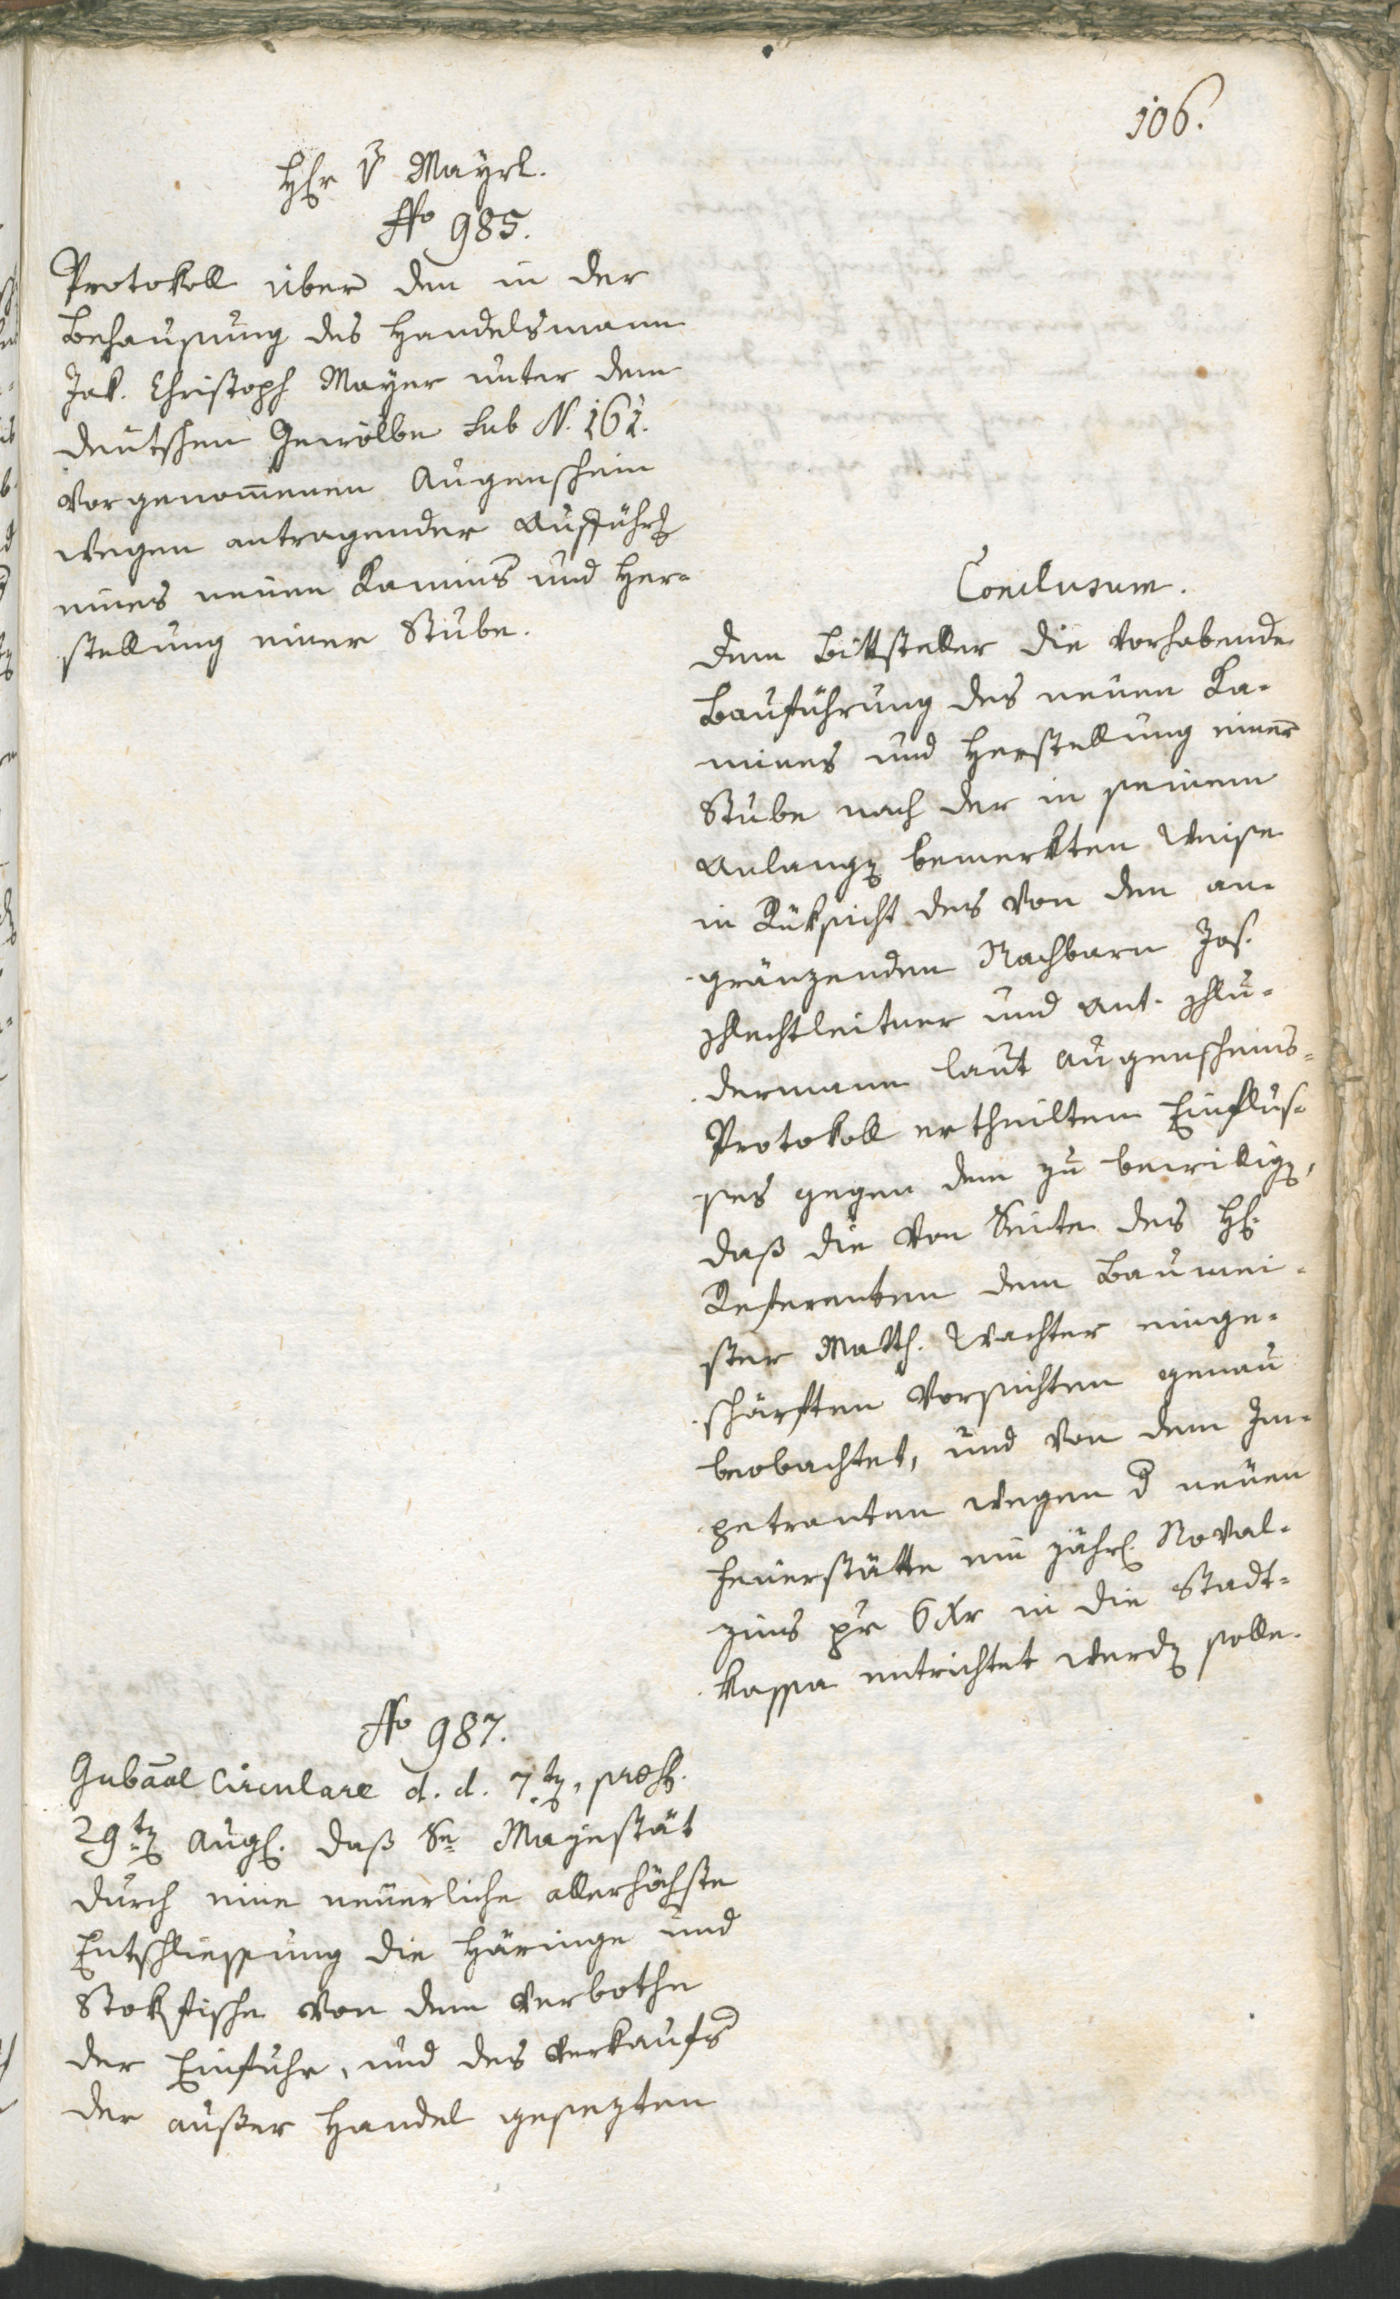 106.
H[er]r v Mayrl.
No 985.
Protokoll über den in der
Behausung des Handelsmann
Jak. Christoph Mayer unter dem
deutschen Gewölbe sub N. 161.
vorgenom̅enen Augenschein
wegen antragender Ausführ[ung]
eines neuen Kamins und Her-
stellung einer Stube.
Conclusum.
Dem Bittsteller die vorhabende
Bauführung des neuen Ka-
mines und Herstellung einer
Stube nach der in seinem
Anlang[en] bemerkten Weise
in Rüksicht des von den an-
gränzenden Nachbarn Jos.
Schlechtleitner und Ant. Schlu-
dermann laut Augenscheins-
Protokoll ertheiltem Einflus-
ses gegen dem zu bewillig[en],
daß die von Seite des H[errn]
Referenten dem Baumei-
ster Matth. Wachter einge-
schärften Vorsichten genau
beobachtet, und von dem Im-
petranten wegen d neuen
Feuerstätte ein jährl. Noval-
zins pr 6 Xr in die Stadt-
kassa entrichtet werd[en] solle.
No 987.
Gub[erni]al Circulare d. d. 7t[en], præs.
29t[en] Aug. daß Se Mayestät
durch eine neuerliche allerhöchste
Entschliessung die Häringe und
Stokfische von dem Verbothe
der Einfuhr, und des Verkaufs
der außer Handel gesezten